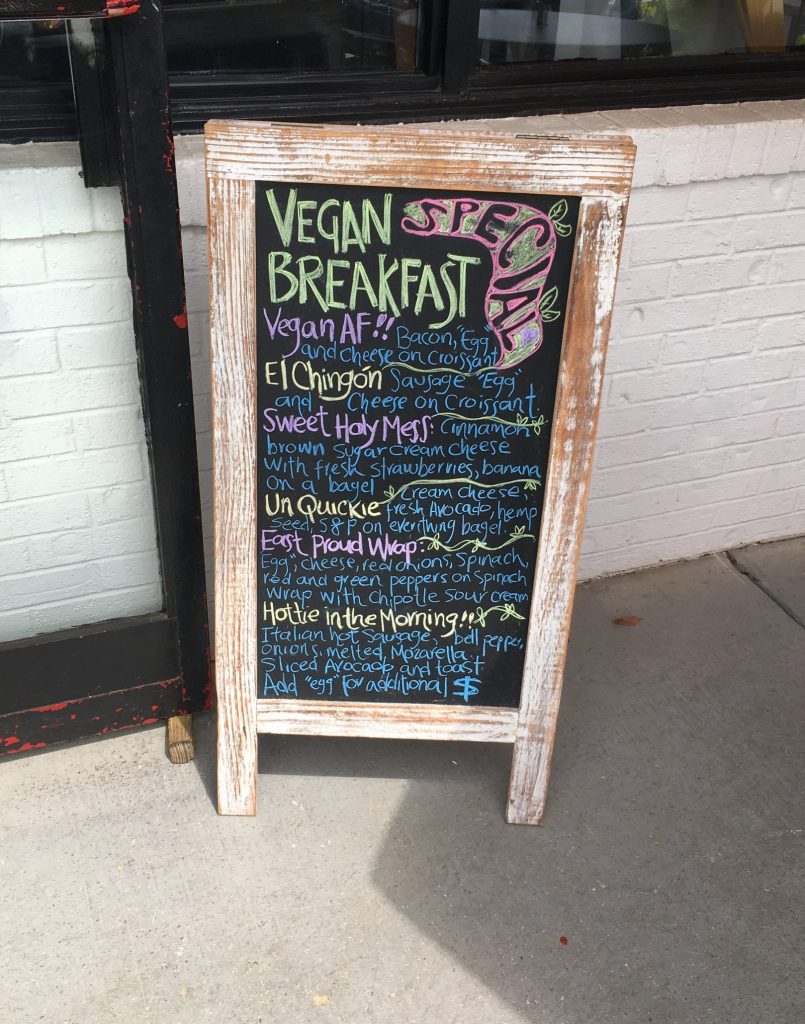 VEGAN SPECIAL
BREAKFAST
Vegan AF!! Bacon, "Egg"
and cheese on croissant
El Chingón Sausage "Egg"
and Cheese on Croissant
Sweet Holy Mess: Cinnamon
brown sugar cream cheese
with fresh strawberries, banana
on a bagel
Un Quickie Cream cheese,
fresh Avocado, hemp
seed, S&P on everything bagel
East Proud Wrap:
Egg", cheese, red onions, spinach,
red and green peppers on spinach
wrap with chipotle sour cream
Hottie in the Morning!!
Italian hot sausage, bell pepper,
onions, melted Mozarella
Sliced Avocado and toast
Add "egg" for additional $